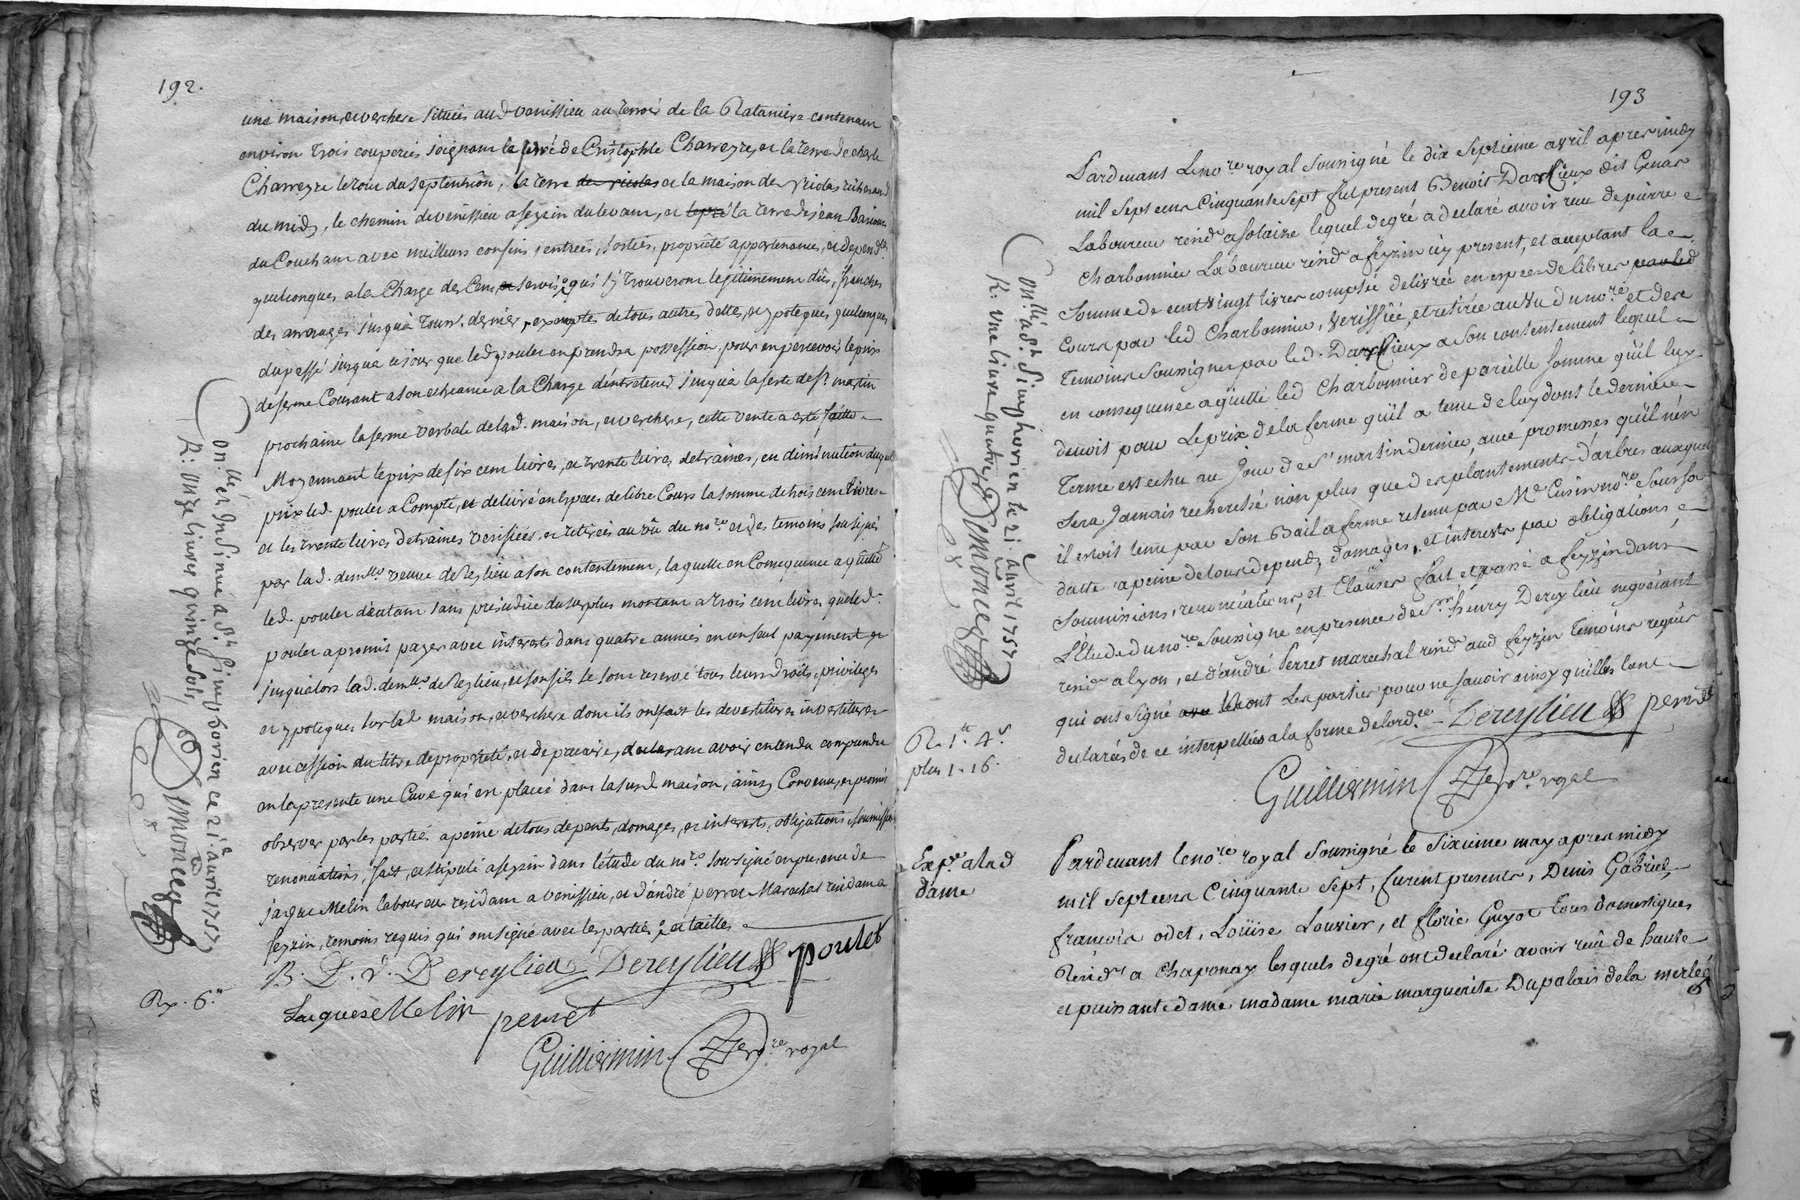 192.
une maison, et verchere situés aud venissieu au terroir de la Ratanière contenant
environ trois couperées joignant le pré de Cristophle Charreyre, et la terre de charle
Charreyre le tour du septentrion, la terre de nicolas et la maison de nicolas
du midy, le chemin de venissieu a feyzin du levant, et le pré la terre de jean
du Couchant avec meilleurs confins, entrées, sorties, proprieté appartenances, et dependces
quelconques a la Charge des Cens et servis qui s'y trouveront legitimement dûs, franches
des arrerages jusqua tours. dernier, exemptes de tous autres dettes, et ypoteques, quelconques
du passé jusqua ce jour que led poulet en prendra possession, pour en percevoir le prix
de ferme Courant a son echeance a la Charge d'entretenir jusqua la feste de st martin
prochaine la ferme verbale de lad. maison, et verchere, cette vente a esté faitte
Moyennant le prix de six cent livres, et trente livres detraines, en diminution duquel
prix led. poulet a Compté, et delivré en especes de libre Cours la somme de trois cent livres
et les trente livres detraines verifiées, et retirées au vû du nore et des temoins sousignés
par lad. demlle veuve dereylieu a son contentement, laquelle en Consequence a quitté
led. poulet d'autant sans prejudice du surplus montant a trois cent livres que led.
poulet a promis payer avec interets dans quatre années en un seul payement et
jusqualors lad. demlle dereylieu, et son fils se sont reservé tous leurs droits, privileges
et ypoteques sur lad maison, et verchere dont ils ont fait les devestitures investitures
avec cession du titre de proprieté, et de precaire, declarant avoir entendu comprendre
en la presente une Cuve qui est placée dans la susd maison, ainsy Convenu, et promis
observer par les parties a peine de tous depents, domages, et interests, obligations, soumissions
renonciations, fait, et stipulé a feyzin dans l'étude du nore sousigné en presence de
jacque Melin laboureur residant a venissieu, et d'andré perret Marechal residant a
feyzin, temoins requis qui ont signé avec les parties
B. D. v. Dereylieu Dereylieu poulet
Jacques Melin perret
Guillermin nore royal
Rx. 6.lt
Onllé et Insinué a St Simphorien ce 21e avril 1757
R: onze livres quinze sols,
Simoncey
193
Pardevant le nore royal Sousigné le dix Septieme avril apres midy
mil Sept cens Cinquante Sept fut present Benoit Darcieux dit Genas
Laboureur resid. a Solaize lequel de gré a declaré avoir reçu de pierre
Charbonnier Laboureur resid. a feyzin icy present, et acceptant la
Somme de cent vingt livres comptée delivrée en especes de libres par led
Cours par led Charbonnier, verifiée, et retirée au vu du nore et des
Temoins Sousignés par led. Darcieux a Son contentement lequel
en consequence a quitté led Charbonnier de pareille Somme qu'il luy
devoit pour Le prix de la ferme qu'il a tenu de luy dont le dernier
Terme est echu au Jour de St martin dernier, avec promesses qu'il n'en
Sera Jamais recherché non plus que des plantements d'arbres auxquels
il estoit tenu par Son Bail a ferme retenu par Me nore Sous Sa
datte a peine de tous depends, domages, et interets par obligations,
Soumissions, renonciations, et Clauses fait et passé a feyzin dans
L'Etude du nore Sousigné en presence de Sr henry Dereylieu negociant
resid. a lyon, et d'andré Perret marechal resid. aud feyzin Temoins requis
qui ont Signé non Les parties pour ne Savoir ainsy qu'elles l'ont
declarés de ce interpellés a la forme de lordce Dereylieu perret
Guillermin nore royal
Onllé a St Simphorien le 21. avril 1757
R: une livre quatre
Simoncey
Rx 1lt 4s
plus 1. 16.
Expé a lad
dame
Pardevant le nore royal Sousigné le Sixieme may apres midy
mil Sept cens Cinquante Sept, furent presents, Denis Gabriel
francois odet, Loüise Louvier, et florie Guyot tous domestiques
Resid. a Chaponay lesquels de gré ont declaré avoir reçu de haute
et puissante dame madame marie marguerite Dupalais de la merlée